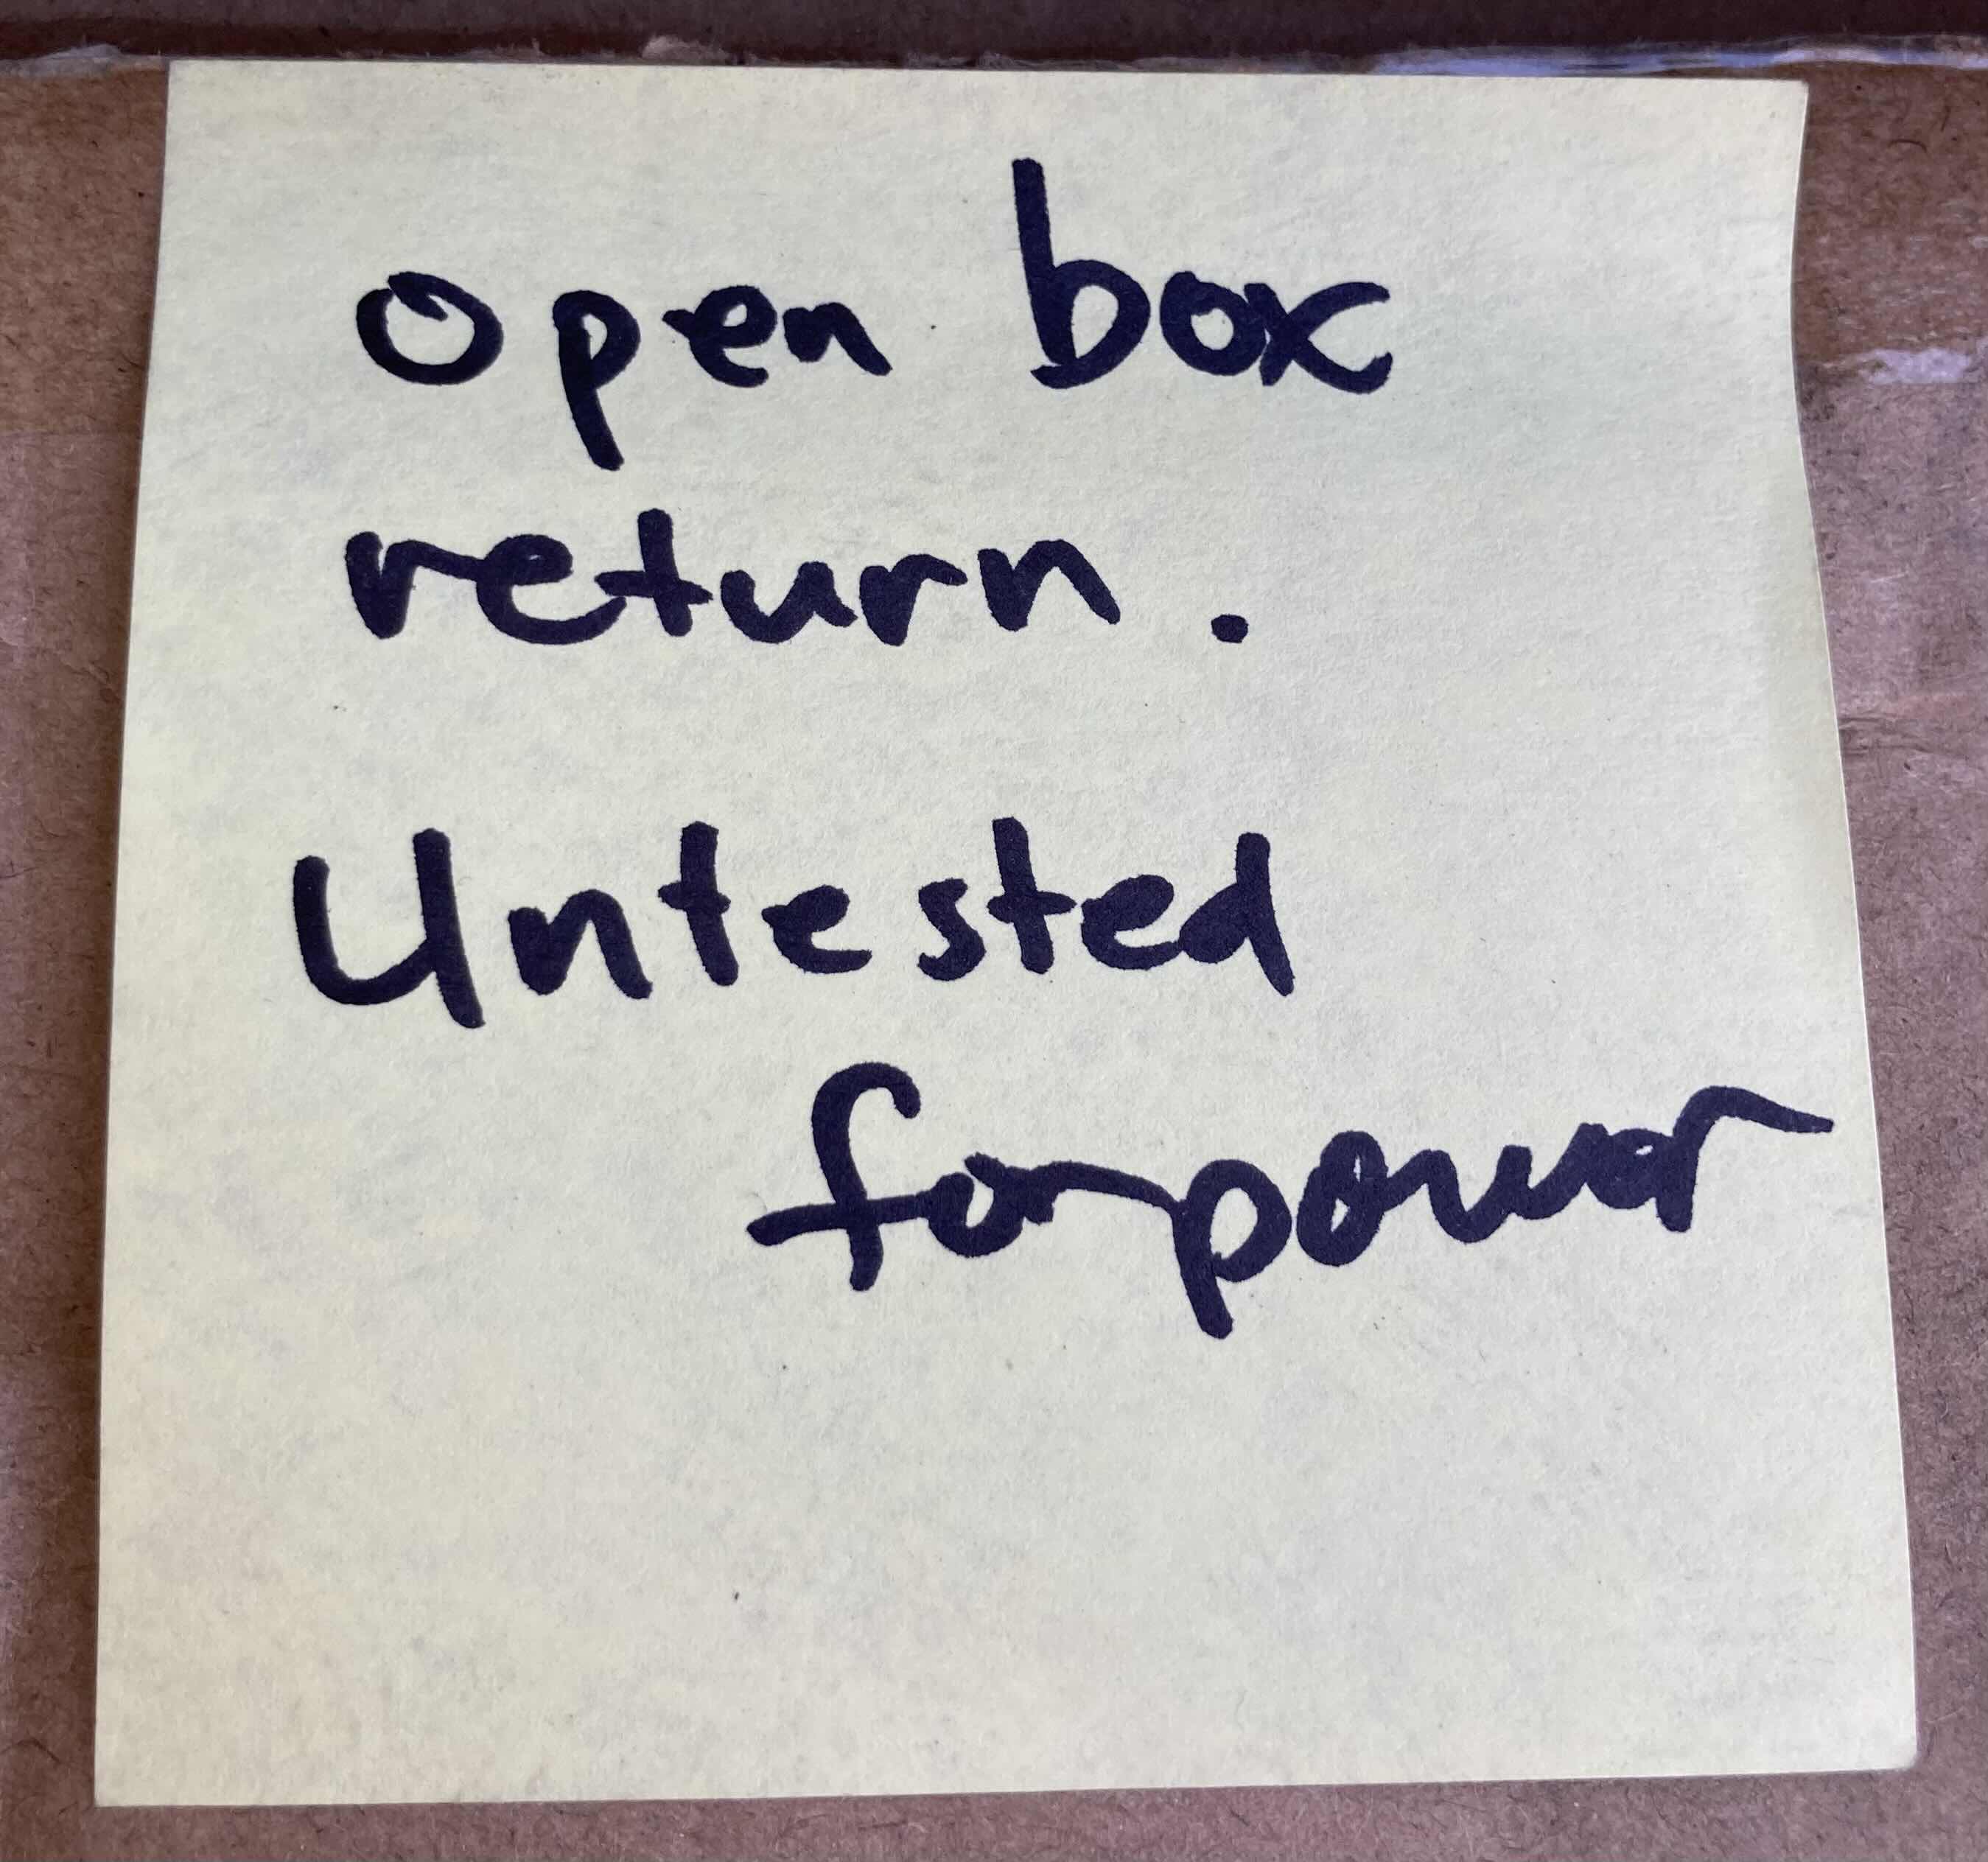 open box
return.
Untested
for power